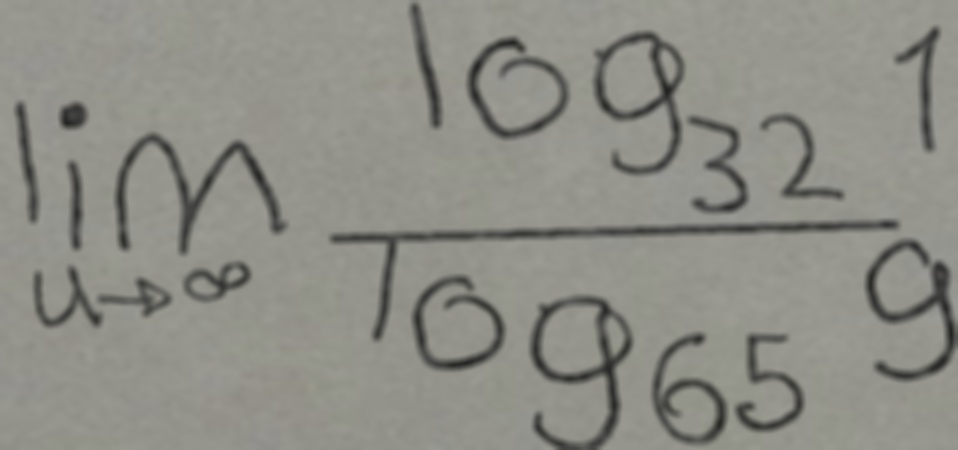 \lim_{u \to \infty} \frac{\log_{32} 1}{\log_{65} 9}